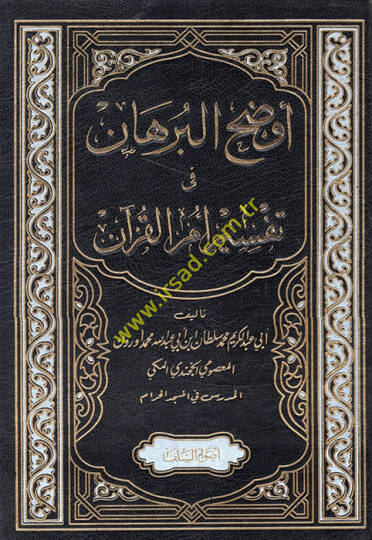 أوضح البرهان
في
تفسير أم القرآن
تأليف
أبي عبد الكريم محمد سلطان ابن أبي عبد الله محمد أورون
المعصومي الخجندي المكي
المدرس في المسجد الحرام
أضواء السلف
www.irsad.com.tr